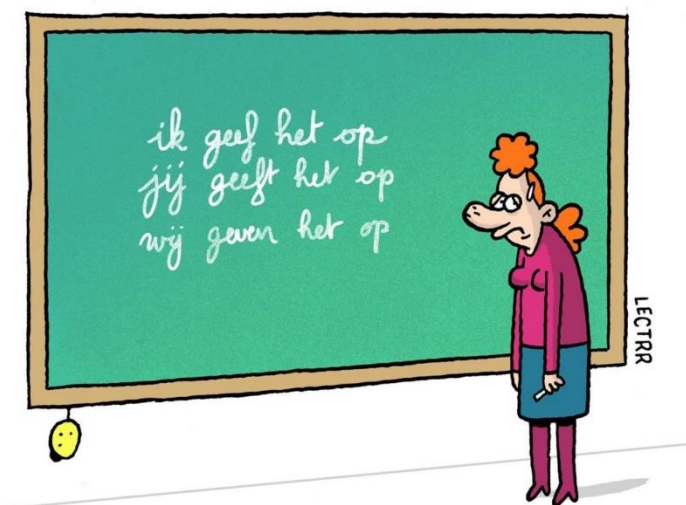 ik geef het op
jij geeft het op
wij geven het op
LECTRR